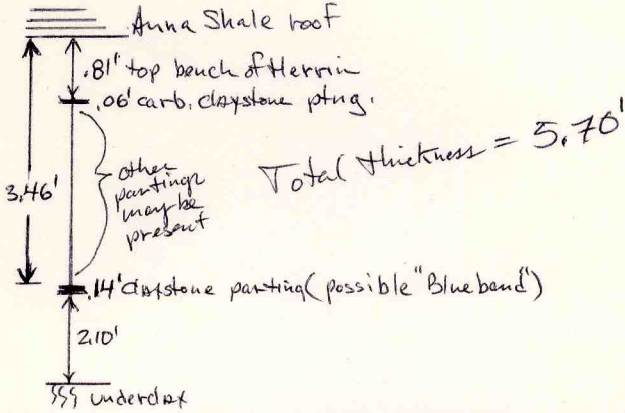 Anna Shale roof
.81' top bench of Herrin
.06' carb. claystone ptng.
other
partings
may be
present
Total thickness = 5.70'
3.46'
.14' claystone parting (possible "Blue band")
2.10'
underclay